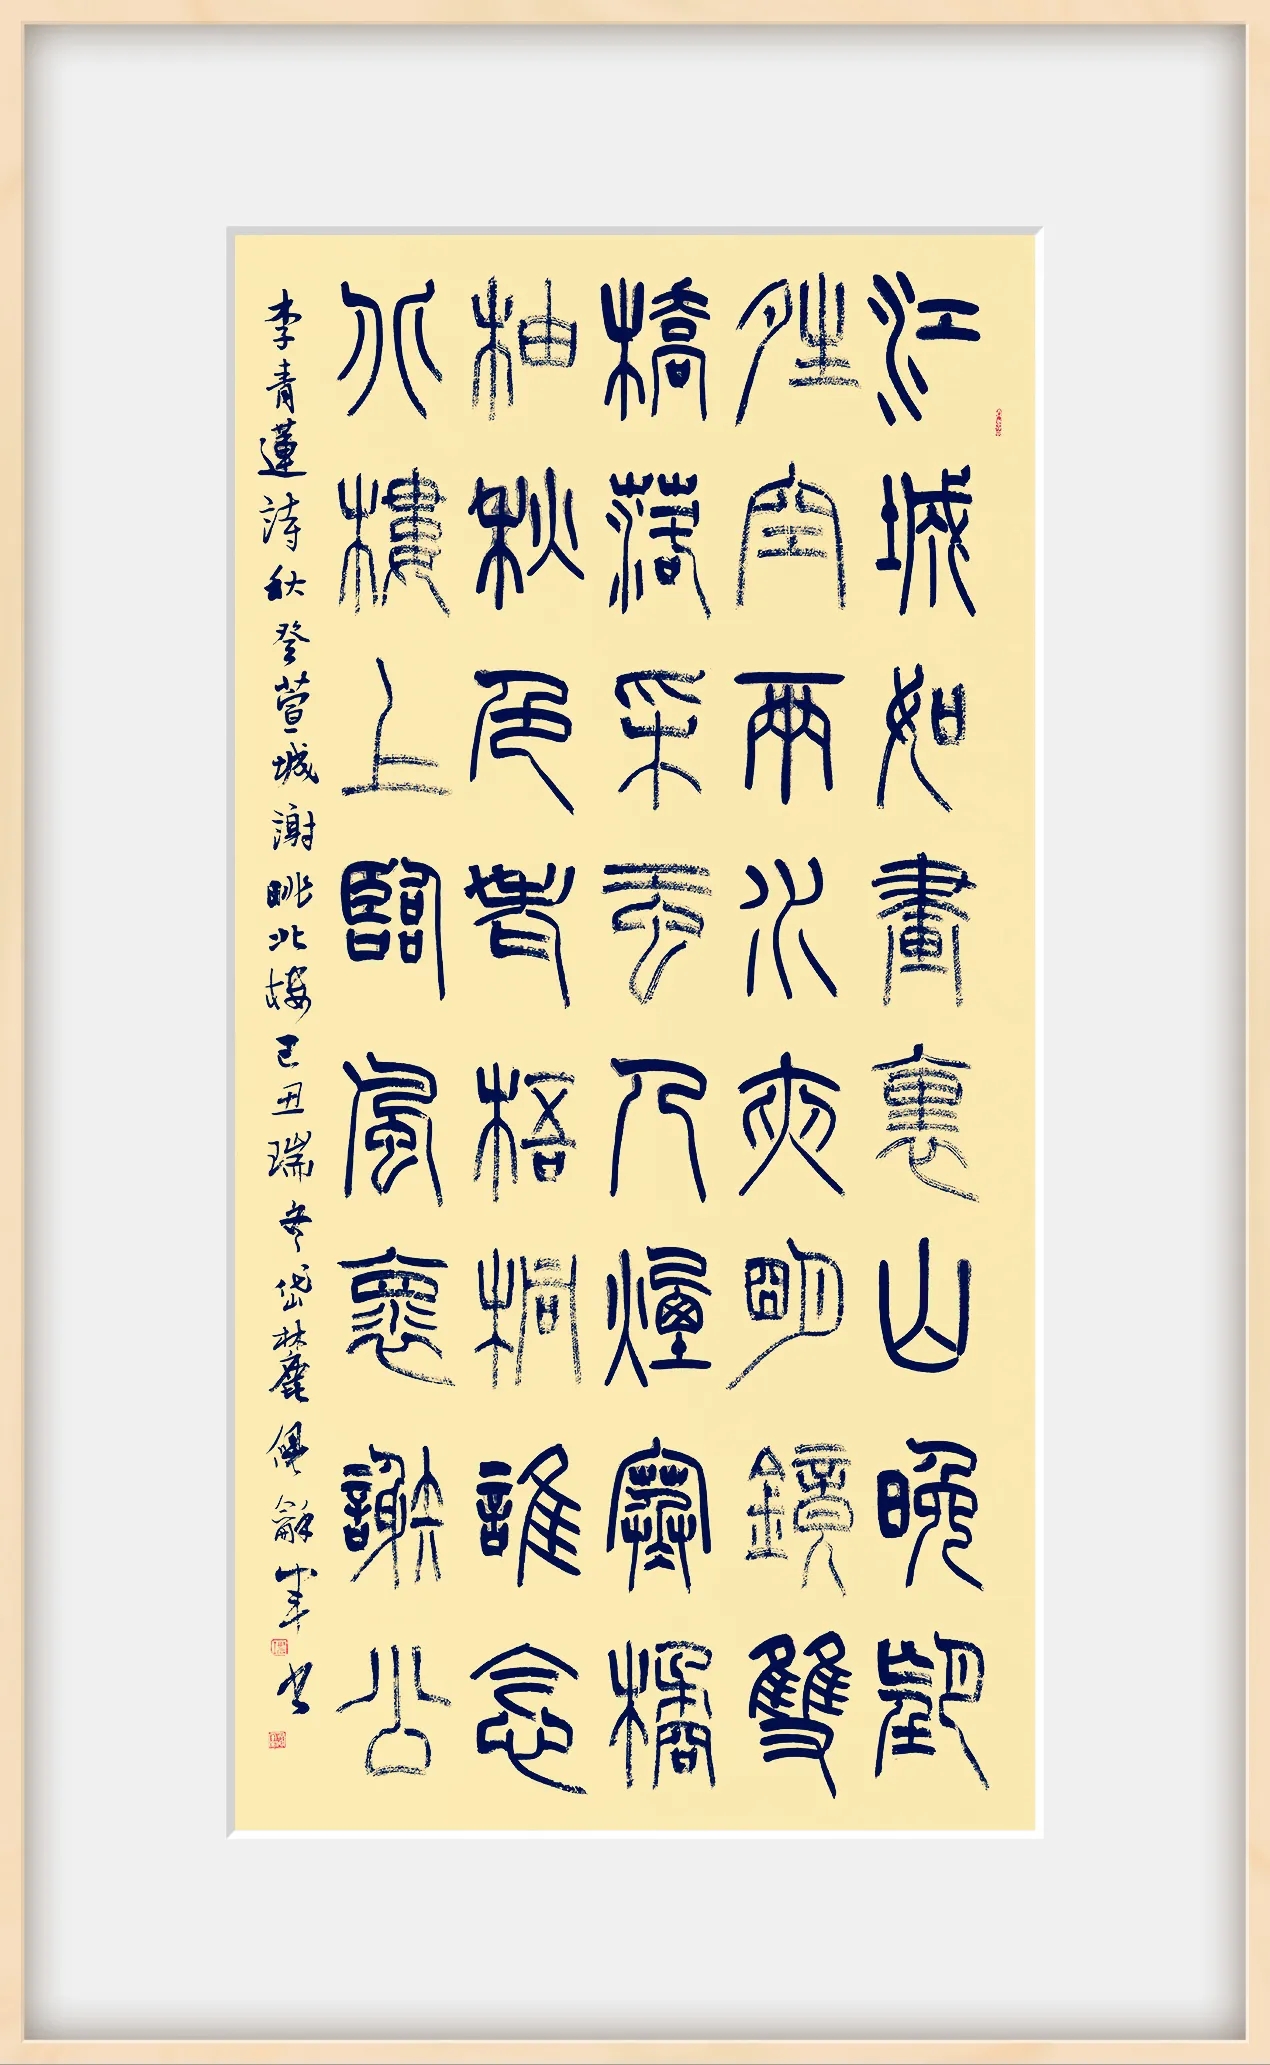 江城如畫裏山晚望
晴空兩水夾明鏡雙
橋落采虹人煙寒橘
柚秋色老梧桐誰念
北樓上臨風懷謝公
李青蓮詩秋登萱城謝眺北樓己丑瑞冬岱林麓龢峯書